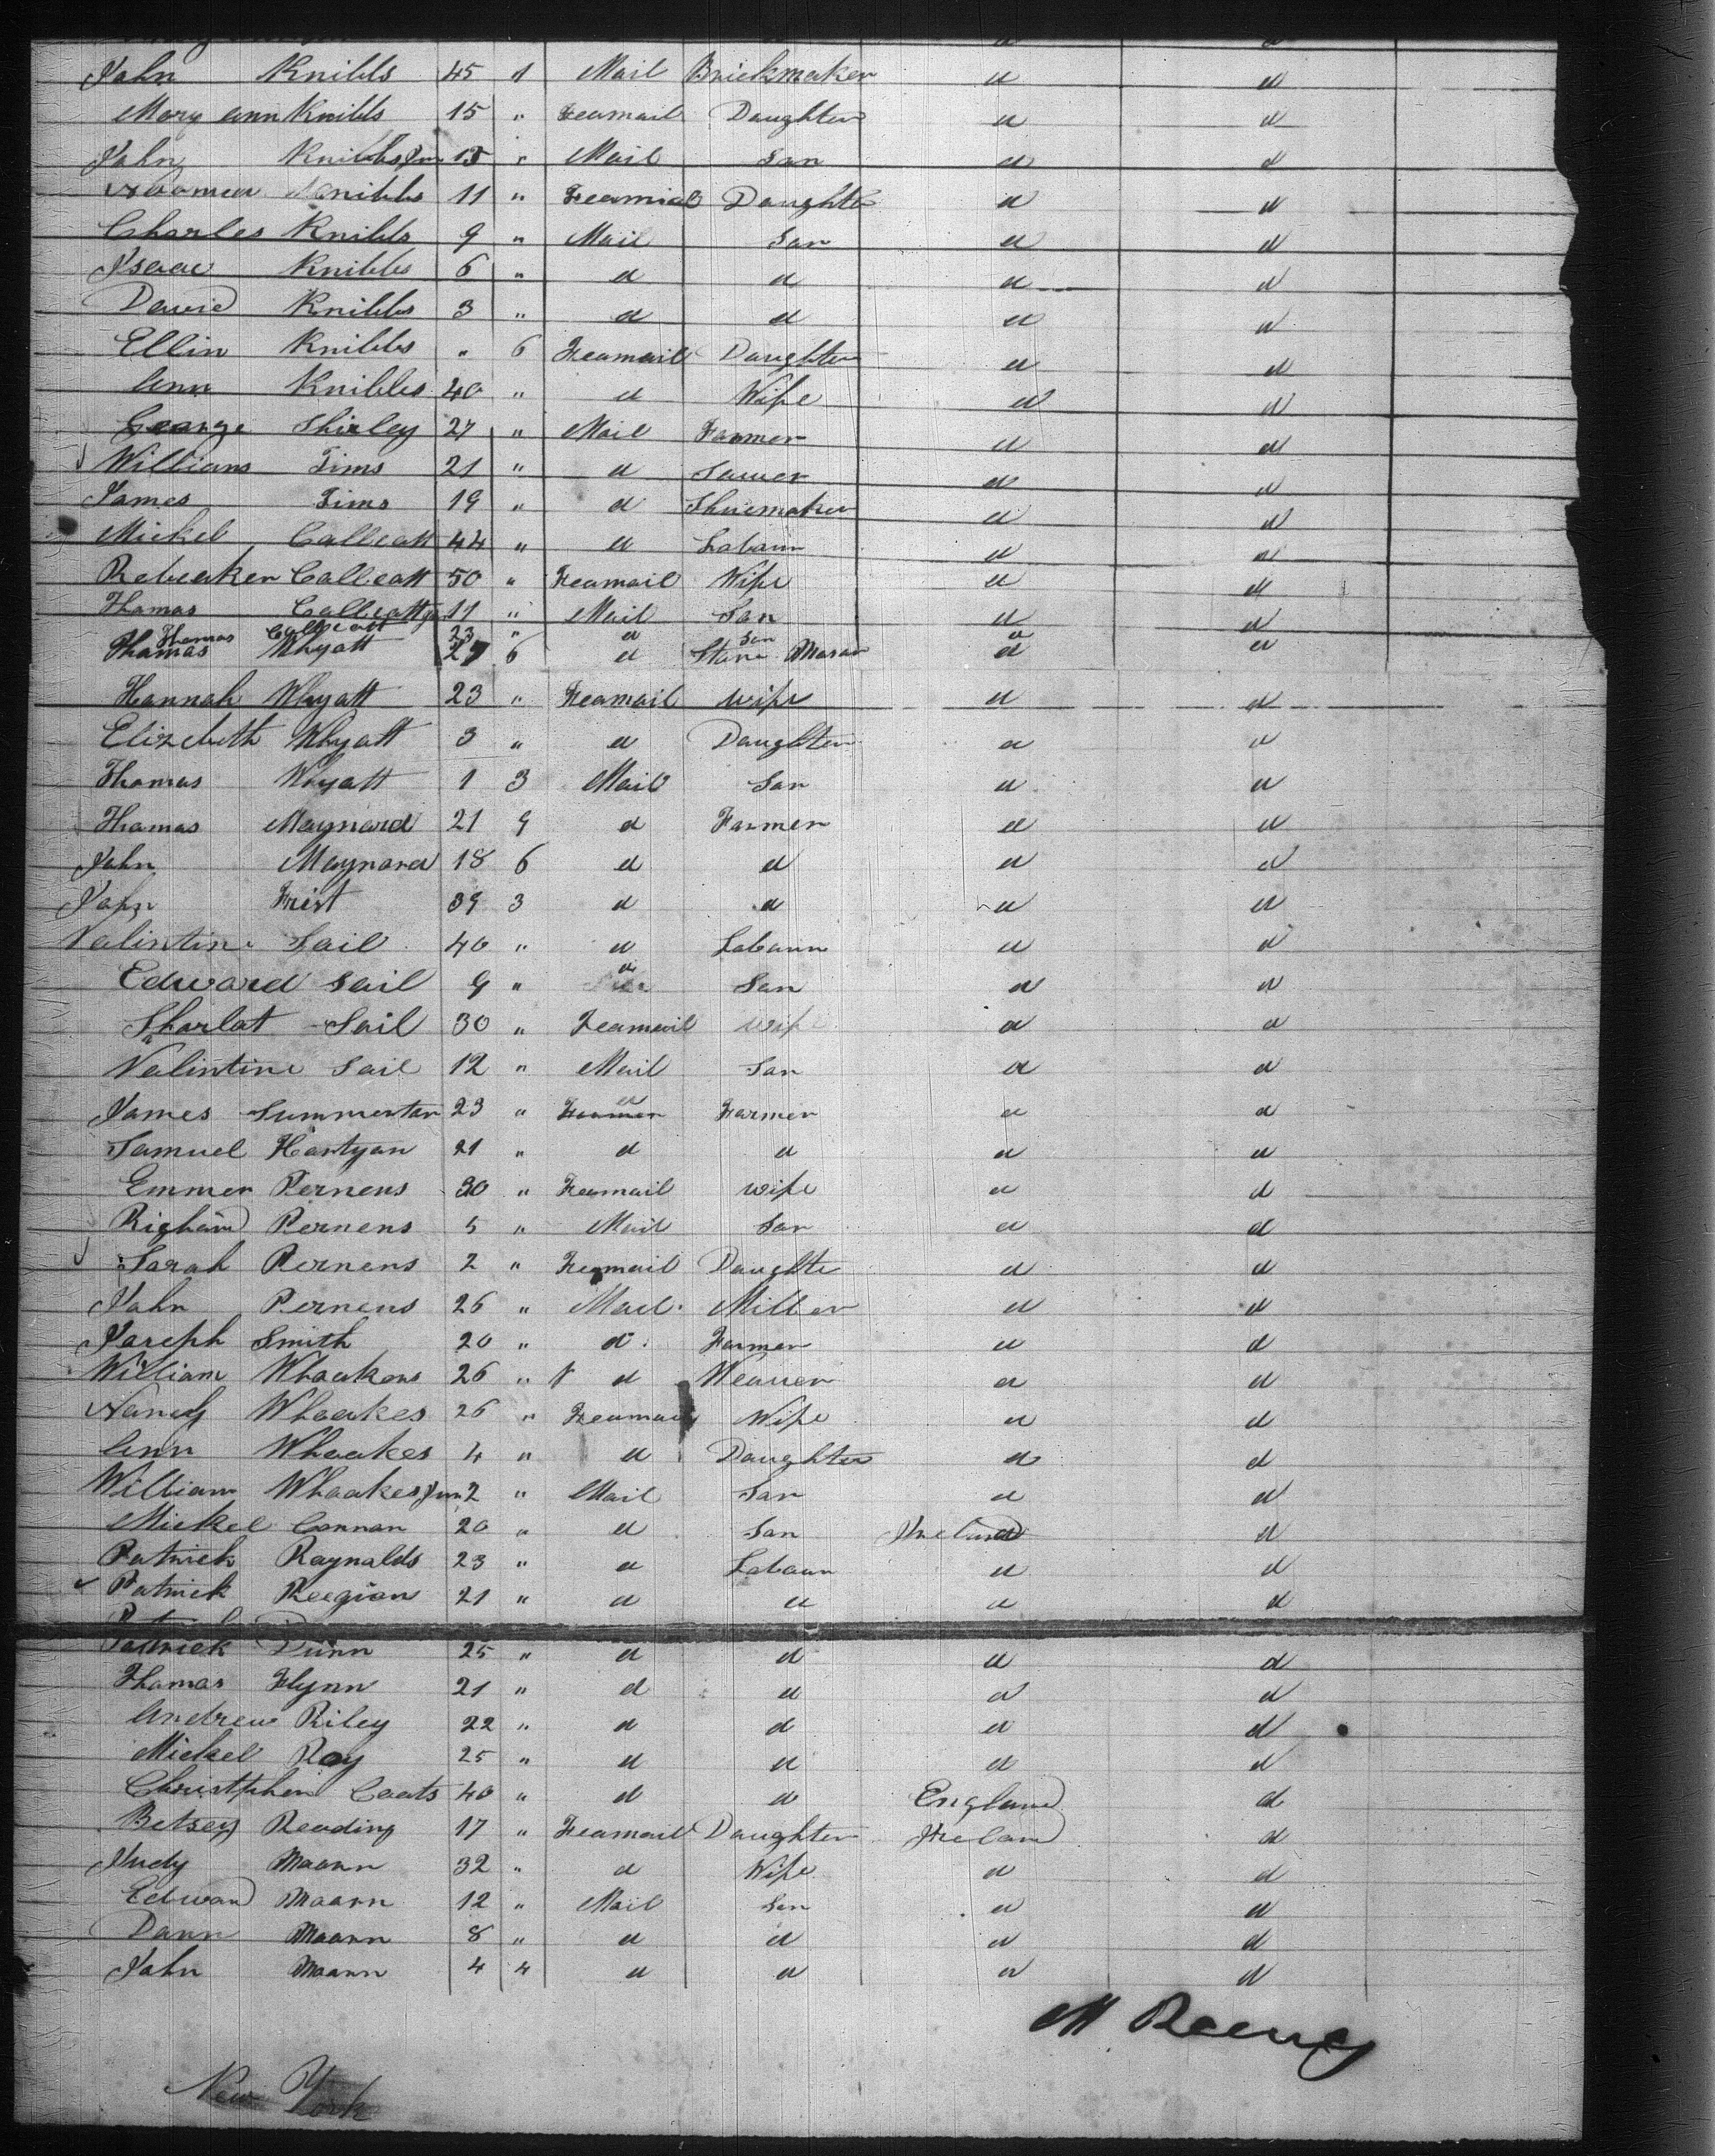 John Knibbs 45 " Mail Brickmaker d d
Mary ann Knibbs 15 " Feamail Daughter d d
John Knibbs Jun 13 " Mail Son d d
Knibbs 11 " Feamial Daughte d d
Charles Knibbs 9 " Mail Son d d
Isaac Knibbs 6 " d d d d
David Knibbs 3 " d d d d
Ellin Knibbs " 6 Feamail Daughter d d
Ann Knibbs 40 " d Wife d d
George Shirley 27 " Mail Farmer d d
William Tims 21 " d Sawer d d
James Tims 19 " d Shuemaker d d
Mickel Callcott 44 " d Labaur d d
Rebecker Callcott 50 " Feamail Wife d d
Thomas Callcott Jr 11 " Mail Son d d
Thomas Callcott 23 " d Son d
Thomas Whyatt 27 6 d Stone Mason d d
Hannah Whyatt 23 " Feamail wife d d
Elizebeth Whyatt 3 " d Daughter d d
Thomas Whyatt 1 3 Mail Son d d
Thomas Maynard 21 9 d Farmer d d
John Maynard 18 6 d d d d
John Frist 39 3 d d d d
Valintine Sail 40 " d Labaur d d
Edward Sail 9 " d Son d d
Sharlat Sail 30 " Feamail wife d d
Valintine Sail 12 " Mail Son d d
James Summertan 23 " d Farmer d d
Samuel Hartyan 21 " d d d d
Emmer Pernens 30 " Feamail wife d d
Pernens 5 " Mail Son d d
Sarah Pernens 2 " Feamail Daughte d d
John Pernens 26 " Mail Miller d d
Joseph Smith 20 " d Farmer d d
William Whoakes 26 " d Weauer d d
Nancy Whoakes 26 " Feamail Wife d d
Ann Whoakes 4 " d Daughter d d
William Whoakes Jun 2 " Mail Son d d
Mickel Connan 20 " d Son Ireland d
Patrick Raynalds 23 " d Labaur d d
Patrick Reegian 21 " d d d d
Patrick Dunn 25 " d d d d
Thomas Flynn 21 " d d d d
Andrew Riley 22 " d d d d
Mickel Roy 25 " d d d d
Christpher Coats 40 " d d England d
Betsey Reading 17 " Feamail Daughter Ireland d
Judy Maann 32 " d Wife d d
Edward Maann 12 " Mail Son d d
Dann Maann 8 " d d d d
John Maann 4 4 d d d d
M
New York